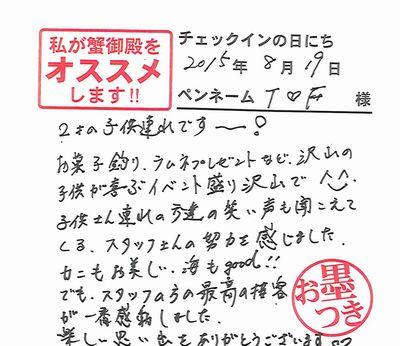 私が蟹御殿を
オススメ
します!!
チェックインの日にち
2015年 8月 19日
ペンネーム T♡F 様
2才の子供連れです〜!
お菓子釣り、ラムネプレゼントなど、沢山の
子供が喜ぶイベント盛り沢山で ^^。
子供さん連れの方達の笑い声も聞こえて
くる、スタッフさんの努力を感じました。
カニもお美しい、海もgood!!
でも、スタッフの方の最高の接客
が一番感動しました。
楽しい思い出をありがとうございます♡
お墨つき